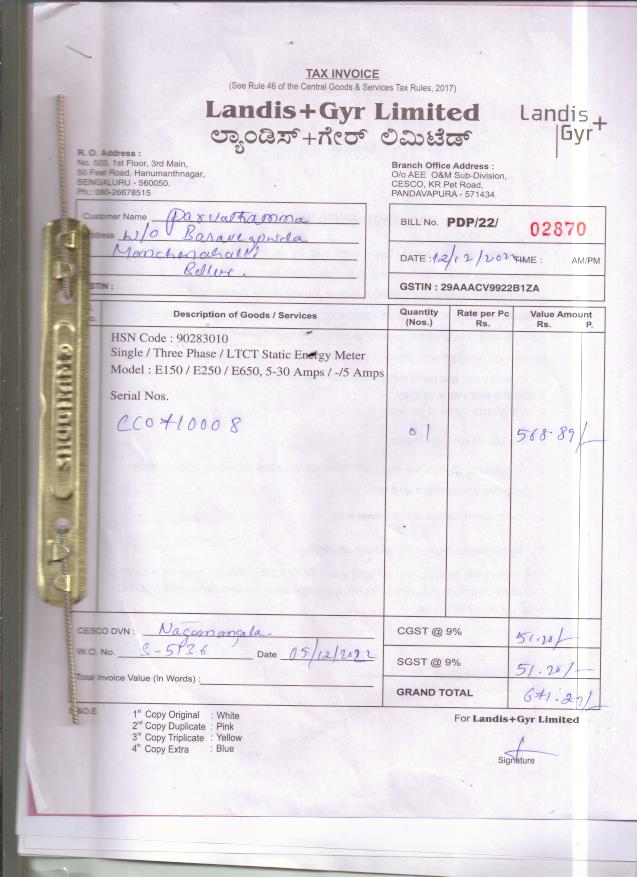 TAX INVOICE
(See Rule 46 of the Central Goods & Services Tax Rules, 2017)
Landis+Gyr Limited
ಲ್ಯಾಂಡಿಸ್+ಗೇರ್ ಲಿಮಿಟೆಡ್
Landis
Gyr+
R. O. Address :
No. 503, 1st Floor, 3rd Main,
50 Feet Road, Hanumanthnagar,
BENGALURU - 560050.
Ph.: 080-26678515
Branch Office Address :
O/o AEE O&M Sub-Division,
CESCO, KR Pet Road,
PANDAVAPURA - 571434.
Customer Name Parvathamma
W/o
Bellur.
BILL No. PDP/22/ 02870
DATE : 12/12/2022 TIME : AM/PM
GSTIN : 29AAACV9922B1ZA
Description of Goods / Services
Quantity (Nos.)
Rate per Pc Rs.
Value Amount Rs. P.
HSN Code : 90283010
Single / Three Phase / LTCT Static Energy Meter
Model : E150 / E250 / E650, 5-30 Amps / -/5 Amps
Serial Nos.
CC0710008 01 568-89/-
CESCO DVN : Nagamangala
W.O. No. S-5936 Date 05/12/2022
Total Invoice Value (In Words) :
CGST @ 9% 51.20/-
SGST @ 9% 51.20/-
GRAND TOTAL 671.29/-
1st Copy Original : White
2nd Copy Duplicate : Pink
3rd Copy Triplicate : Yellow
4th Copy Extra : Blue
For Landis+Gyr Limited
Signature